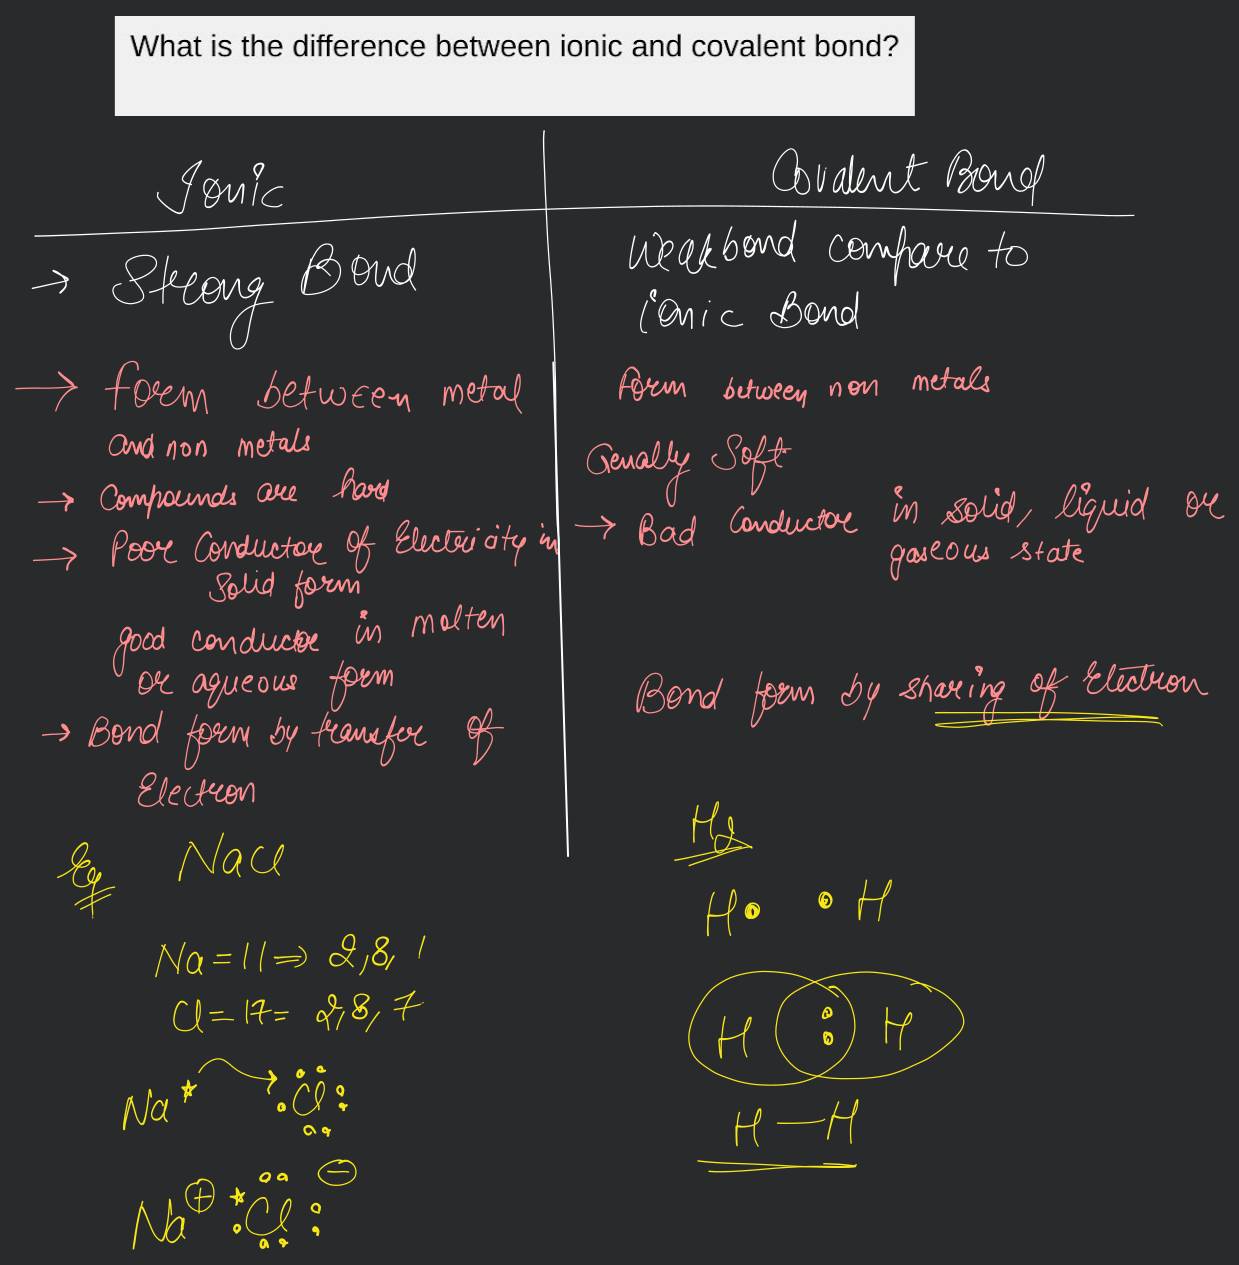 What is the difference between ionic and covalent bond?
Ionic
→ Strong Bond
→ form between metal
and non metals
→ Compounds are hard
→ Poor Conductor of Electricity in
Solid form
good conductor in molten
or aqueous form
→ Bond form by transfer of
Electron
Eg NaCl
Na = 11 ⇒ 2,8, 1
Cl = 17 = 2,8,7
Na Cl
Na⊕ Cl ⊖
Covalent Bond
Weak bond compare to
ionic Bond
form between non metals
Genally Soft
→ Bad Conductor in solid, liquid or
gaseous state
Bond form by sharing of Electron
H2
H• •H
H : H
H — H